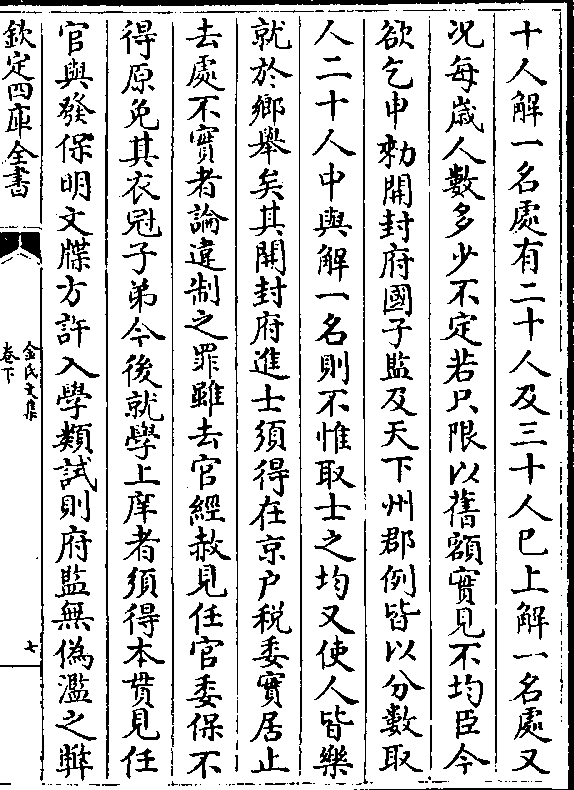 十人解一名處有二十人及三十人已上解一名處又
况每歳人數多少不定若只限以舊額實見不均臣今
欲乞申勑開封府國子監及天下州郡例皆以分數取
人二十人中與解一名則不惟取士之均又使人皆樂
就於鄉舉矣其開封府進士須得在京户税委實居止
去處不實者論違制之罪雖去官經赦見任官委保不
得原免其衣冠子弟今後就學上庠者須得本貫見任
官與發保明文牒方許入學類試則府監無偽濫之弊
欽定四庫全書
金氏文集
卷下
七